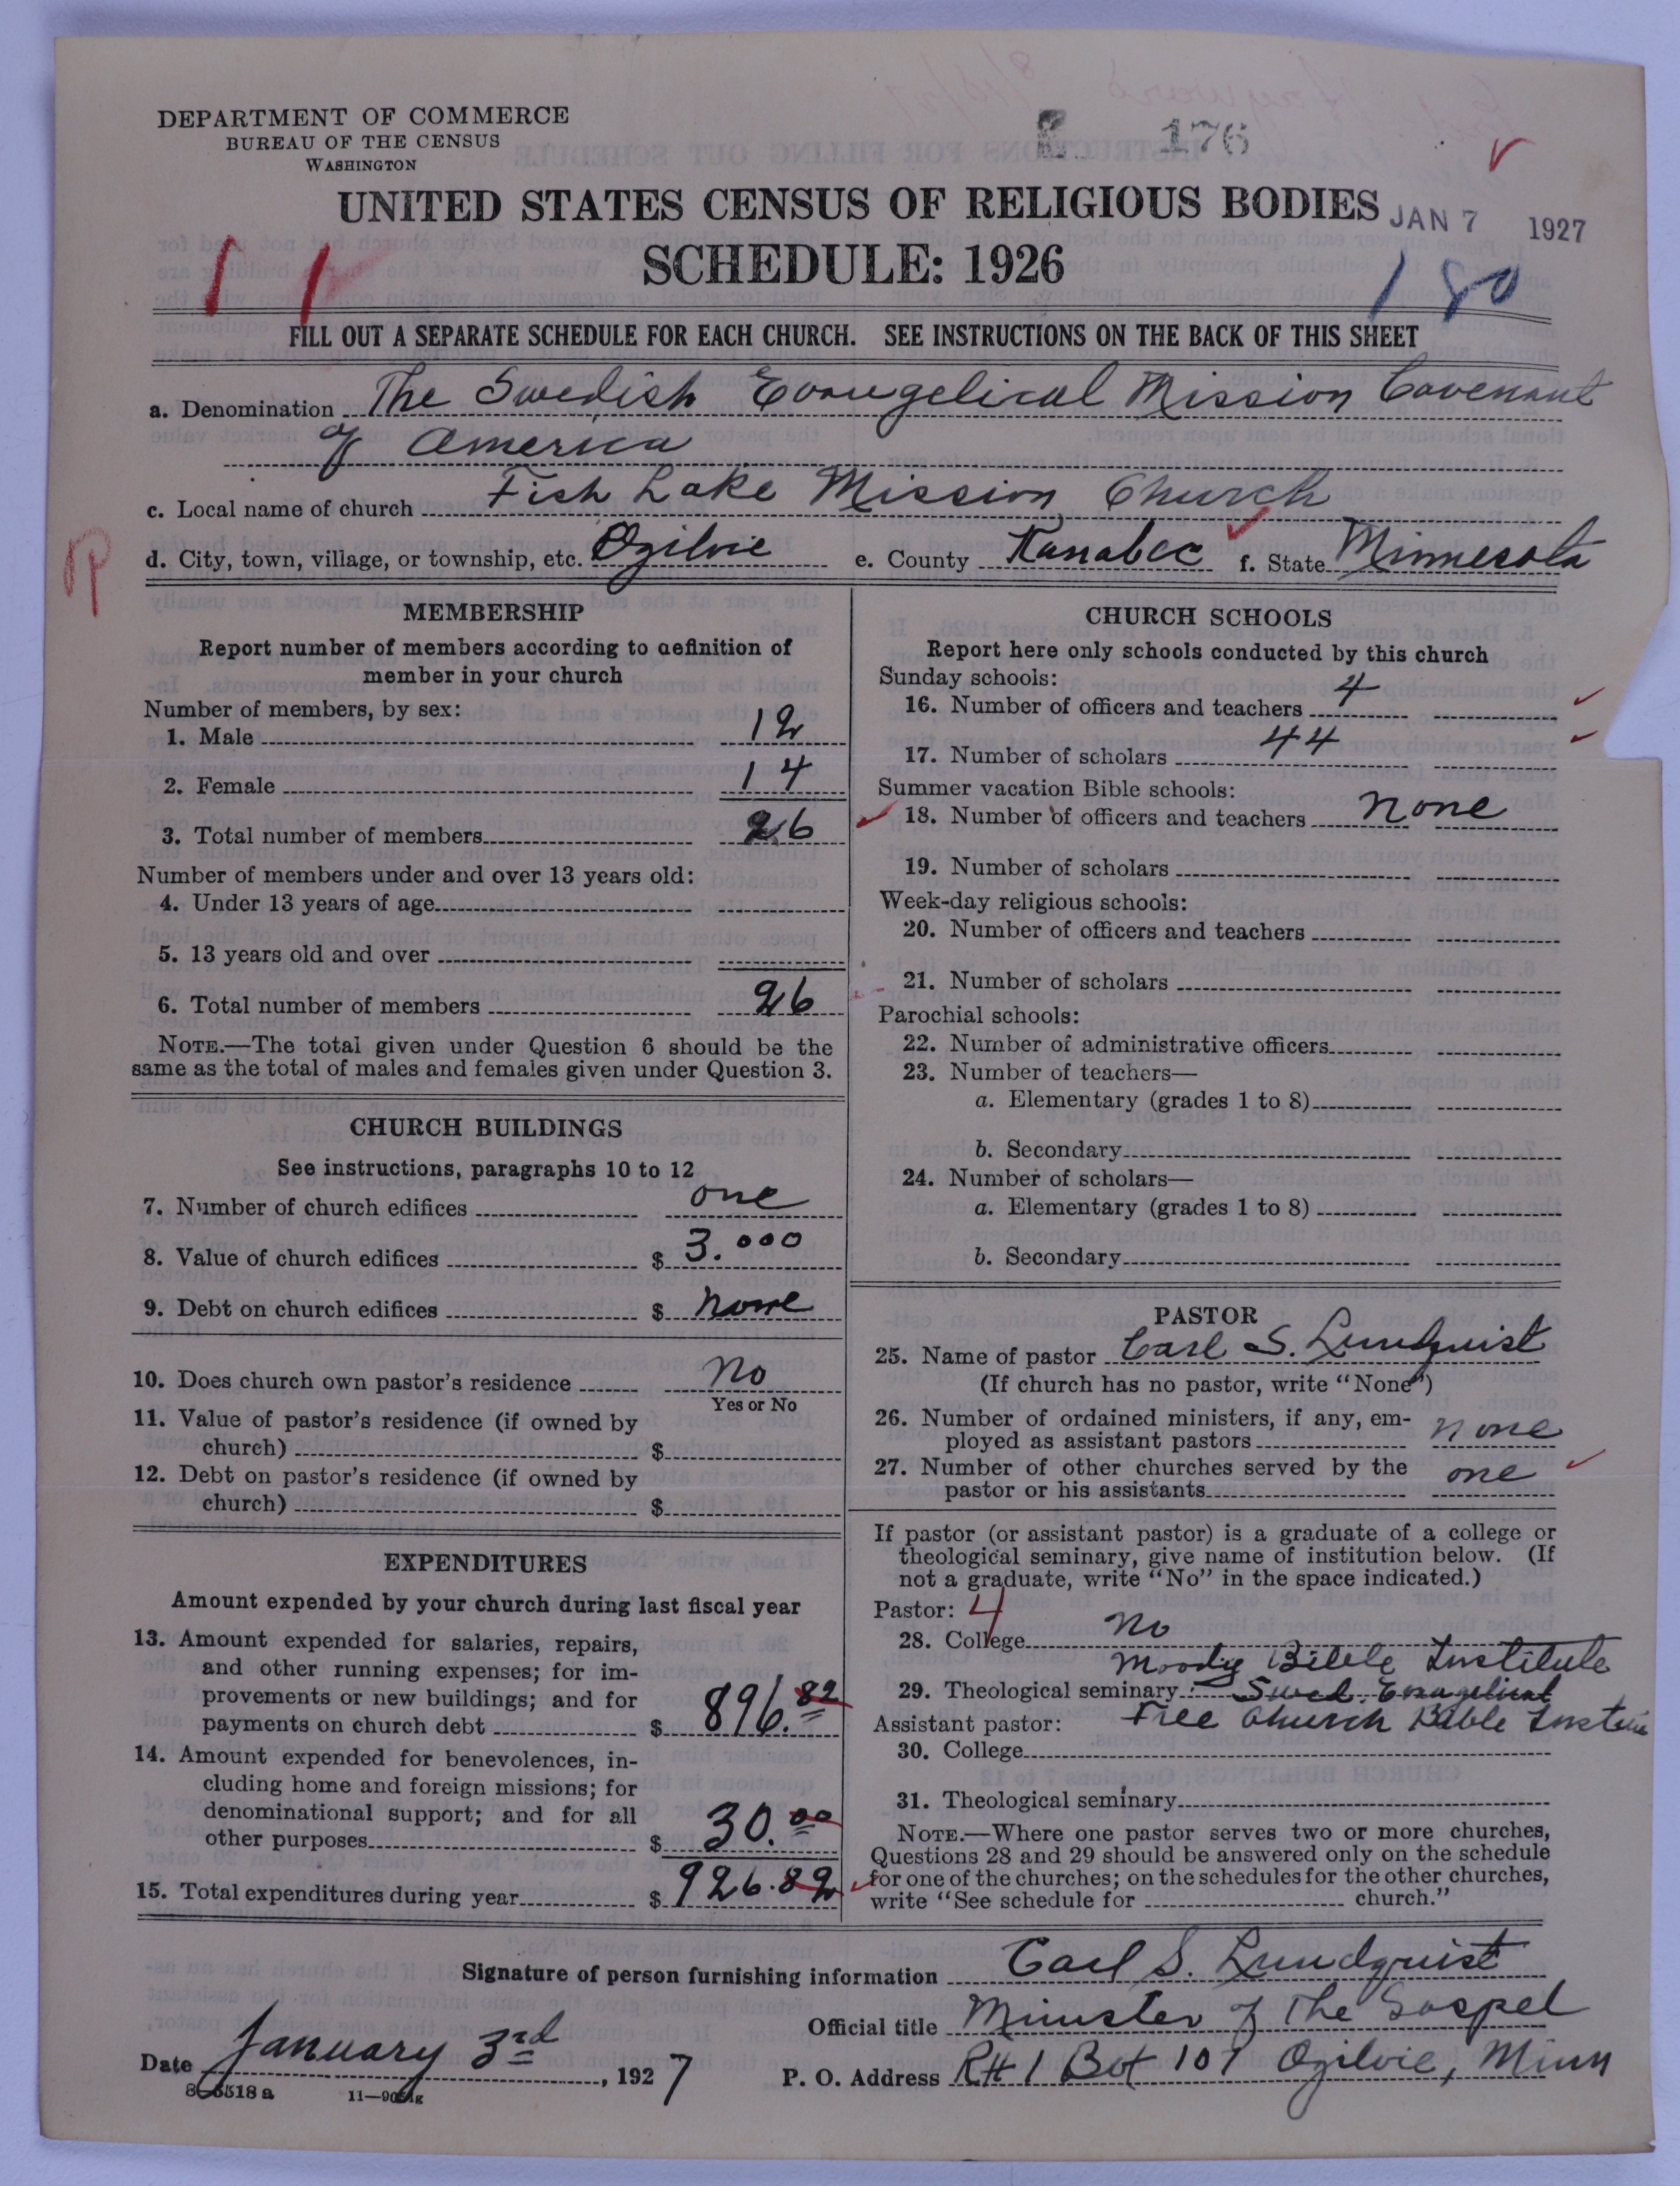 DEPARTMENT OF COMMERCE
BUREAU OF THE CENSUS
WASHINGTON
176
UNITED STATES CENSUS OF RELIGIOUS BODIES
JAN 7 1927
SCHEDULE: 1926
180
FILL OUT A SEPARATE SCHEDULE FOR EACH CHURCH. SEE INSTRUCTIONS ON THE BACK OF THIS SHEET
a. Denomination The Swedish Evangelical Mission Covenant
of America
c. Local name of church Fish Lake Mission Church
d. City, town, village, or township, etc. Ogilvie e. County Kanabec f. State Minnesota
MEMBERSHIP
Report number of members according to definition of
member in your church
Number of members, by sex:
1. Male 12
2. Female 14
3. Total number of members 26
Number of members under and over 13 years old:
4. Under 13 years of age
5. 13 years old and over
6. Total number of members 26
NOTE.—The total given under Question 6 should be the
same as the total of males and females given under Question 3.
CHURCH BUILDINGS
See instructions, paragraphs 10 to 12
7. Number of church edifices one
8. Value of church edifices $ 3.000
9. Debt on church edifices $ none
10. Does church own pastor's residence No
Yes or No
11. Value of pastor's residence (if owned by
church) $
12. Debt on pastor's residence (if owned by
church) $
EXPENDITURES
Amount expended by your church during last fiscal year
13. Amount expended for salaries, repairs,
and other running expenses; for im-
provements or new buildings; and for
payments on church debt $ 896.82
14. Amount expended for benevolences, in-
cluding home and foreign missions; for
denominational support; and for all
other purposes $ 30.00
15. Total expenditures during year $ 926.82
CHURCH SCHOOLS
Report here only schools conducted by this church
Sunday schools:
16. Number of officers and teachers 4
17. Number of scholars 44
Summer vacation Bible schools:
18. Number of officers and teachers none
19. Number of scholars
Week-day religious schools:
20. Number of officers and teachers
21. Number of scholars
Parochial schools:
22. Number of administrative officers
23. Number of teachers—
a. Elementary (grades 1 to 8)
b. Secondary
24. Number of scholars—
a. Elementary (grades 1 to 8)
b. Secondary
PASTOR
25. Name of pastor Carl S. Lundquist
(If church has no pastor, write "None")
26. Number of ordained ministers, if any, em-
ployed as assistant pastors none
27. Number of other churches served by the
pastor or his assistants one
If pastor (or assistant pastor) is a graduate of a college or
theological seminary, give name of institution below. (If
not a graduate, write "No" in the space indicated.)
Pastor: 4
28. College No
Moody Bible Institute
29. Theological seminary Swed. Evangelical
Assistant pastor: Free Church Bible
30. College
31. Theological seminary
NOTE.—Where one pastor serves two or more churches,
Questions 28 and 29 should be answered only on the schedule
for one of the churches; on the schedules for the other churches,
write "See schedule for church."
Signature of person furnishing information Carl S. Lundquist
Official title Minister of The Gospel
Date January 3rd, 1927 P. O. Address R#1 Box 107 Ogilvie, Minn